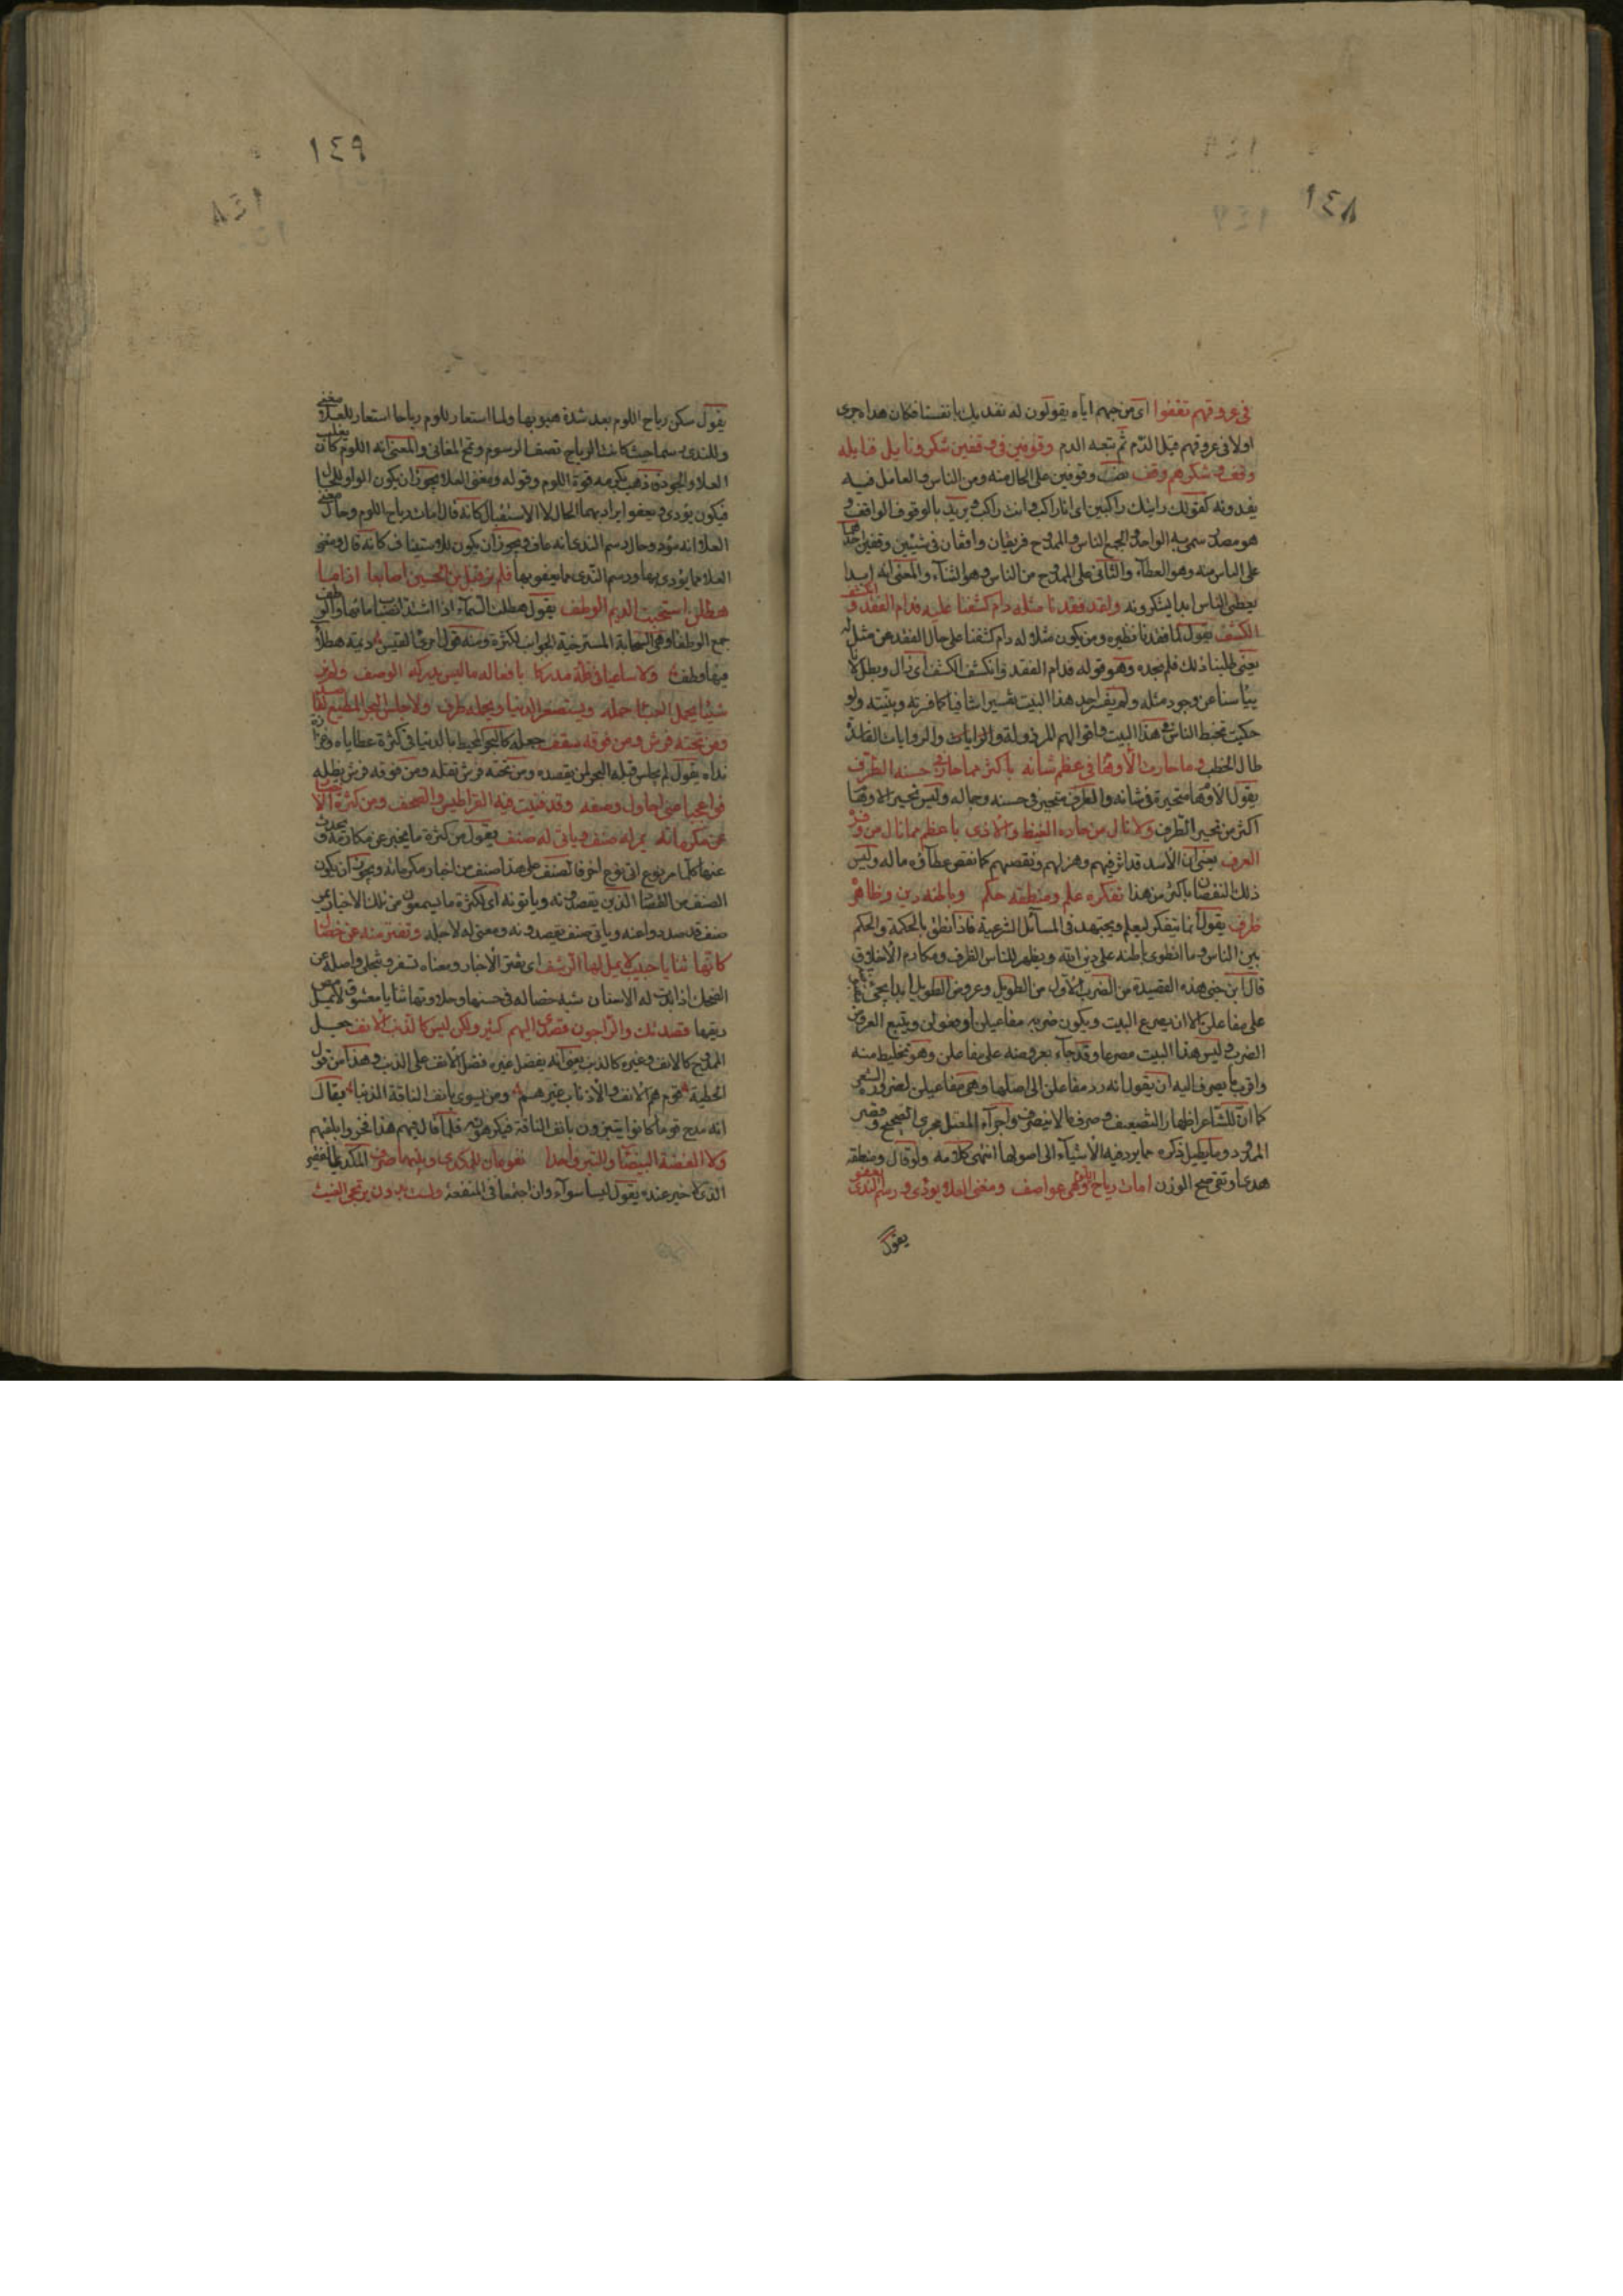 ١٤٨
في عروقهم تقفوا اى من جبهم اياه يقولون له نفديك بانفسنا فكان هداه جرى
اولا في عروقهم قبل الدم ثم يتبعه الدم وقوفين في وقفين شكر ونايل فنايله
وقف وشكرهم وقف نصب وقوفين على الحال منه ومن الناس والعامل فيه
يفدونه كقولك رايتك راكبين اى انا راكب وانت راكب ويريد بالوقوف الواقف و
هو مصدر سمى به الواحد والجمع الناس والممدوح فريقان واقفان في شيئين وقفين احدهما
على الناس منه وهو العطآء والثانى على الممدوح من الناس وهو الثناء والمعنى انه ابدا
يعطى الناس ابدا يشكرونه ولقد فقدنا مثله دام كشفنا عليه فدام الفقد وانكشف
الكشف يقول لما فقدنا نظيره ومن يكون مثلا له دام كشفنا على حال الفقد عن مثل له
يعنى طلبنا ذلك فلم نجده وهو قوله فدام الفقد وانكشف الكشف اى زال وبطل لانا
يئسنا عن وجود مثله ولم يفسر احد هذا البيت تفسيرا شافيا كما فسرته وبينته ولو
حكيت تخبط الناس في هذا البيت واقوالهم المرذولة والروايات الفاسدة
طال الخطب وما حارت الأوهام في عظم شانه باكثر مما حار في حسنه الطرف
يقول الأوهام متحيرة في شانه والطرف متحير في حسنه وجماله وليس تحير الاوهام
اكثر من تحير الطرف ولا نال من حساده الغيظ والاذى باعظم مما نال من وفره
العرف يعنى ان الأسد قد اثر فيهم وهزلهم ونقصهم كما نقص عطاؤه ماله وليس
ذلك النقصان باكثر من هذا تفكره علم ومنطقه حكم وباطنه دين وظاهره
ظرف يقول انما يتفكر ليعلم ويجتهد في المسائل الشرعية فاذا نطق نطق بالحكمة والحكم
بين الناس وما انطوى باطنه على دين الله ويظهر للناس الظرف ومكارم الأخلاق
قال ابن جنى هذه القصيدة من الضرب الأول من الطويل وعروض الطويل ابدا يجئ
على مفاعلن الا ان يصرع البيت ويكون ضربه مفاعيلن او فعولن ويتبع العروض
الضرب وليس هذا البيت مصرعا وقد جآء بعروضه على مفاعلن وهو تخليط منه
واقرب ما يصرف اليه ان يقول انه رد مفاعلن الى اصلها وهى مفاعيلن لضرورة الشعر
كما ان للشاعر اظهار التضعيف وصرف ما لا ينصرف واجرآء المعتل مجرى الصحيح وقصر
الممدود وما يطيل ذكره مما يرد فيه الأشيآء الى اصولها انتهى كلامه ولو قال ومنطقه
هدى او تقى صح الوزن امات رياح اللوم وهى عواصف ومغنى العلا يودى ورسم الندى يعفو
يقول
١٤٩
يقول سكن رياح اللوم بعد شدة هبوبها ولما استعار للوم رياحا استعار للعلا مغنى
وللندى رسما حيث كانت الرياح تصف الرسوم وتمح المغانى والمعنى انه اللوم كان يغلب
العلا والجود فذهب بكرمه قوة اللوم وقوله ومغنى العلا يجوز ان يكون الواو للحال
فيكون يودى ويعفو ايراد بهما الحال لا الاستقبال كانه قال امات رياح اللوم وحال مغنى
العلا انه مود وحال رسم الندى انه عاف ويجوز ان يكون للاستيناف كانه قال ومغنى
العلا مما يودى بها ورسم الندى مما يعفو بها فلم نر قبل ابن الحسين اصابعا اذا ما
هطلن استحيت الديم الوطف يقول هطلت السمآء اذا اشتد انصباب مائها والوطف
جمع الوطفاء وهى السحابة المسترخية الجوانب لكثرة ومنه قول امرئ القيس ديمة هطلاء
فيها وطف ولا ساعيا في قلة مدركا بافعاله ما ليس يدركه الوصف ولم نر
شيئا يحمل العبء حمله ويستصغر الدنيا ويحمله طرف ولا جلس البحر المحيط لقاصد
ومن تحته فرش ومن فوقه سقف جعله كالبحر المحيط بالدنيا في كثرة عطاياه وغزارة
نداه يقول لم يجلس قبله البحر لمن يقصده ومن تحته فرش تقله ومن فوقه فرش يظله
فواعجبا منى احاول وصفه وقد فنيت فيه القراطيس والصحف ومن كثرة الاخبار
عن مكرماته يمر له صنف وياتى له صنف يقول من كثرة ما يخبر عن مكارمه ويحدث
عنها كلما مر نوع اتى نوع اخر فالصنف على هذا صنف من اخبار مكرماته ويجوز ان يكون
الصنف من القصاد الذين يقصدونه وياتونه اى لكثرة ما يسمعون من تلك الاخبار يمر
صنف قد صدروا عنه وياتى صنف يقصدونه ومعنى له لاجله وتفتر منه عن خصال
كانها ثنايا حبيب لا يمل لها الرشف اى تفتر الأخبار ومعناه تسفر وتنجلى واصله من
الضحك اذا بدت له الاسنان شبه خصاله في حسنها وحلاوتها بثنايا معشوق لا يمل مص
ريقها قصدتك والراجون قصدى اليهم كثير ولكن ليس كالذنب الانف جعل
الممدوح كالانف وغيره كالذنب يعنى انه يفضل غيره فضل الأنف على الذنب وهذا من قول
الحطيئة قوم هم الأنف والأذناب غيرهم ومن يسوى بانف الناقة الذنبا يقال
انه مدح قوما كانوا ينبزون بانف الناقة فيكرهونه فلما قال فيهم هذا فخروا بلقبهم
ولا الفضة البيضاء والتبر واحدا نفوعان للمكدى وبينهما صرف المكدى الفقير
الذى لا خير عنده يقول ليسا سوآء وان اجتمعا في المنفعة ولست بدون يرتجى الغيث